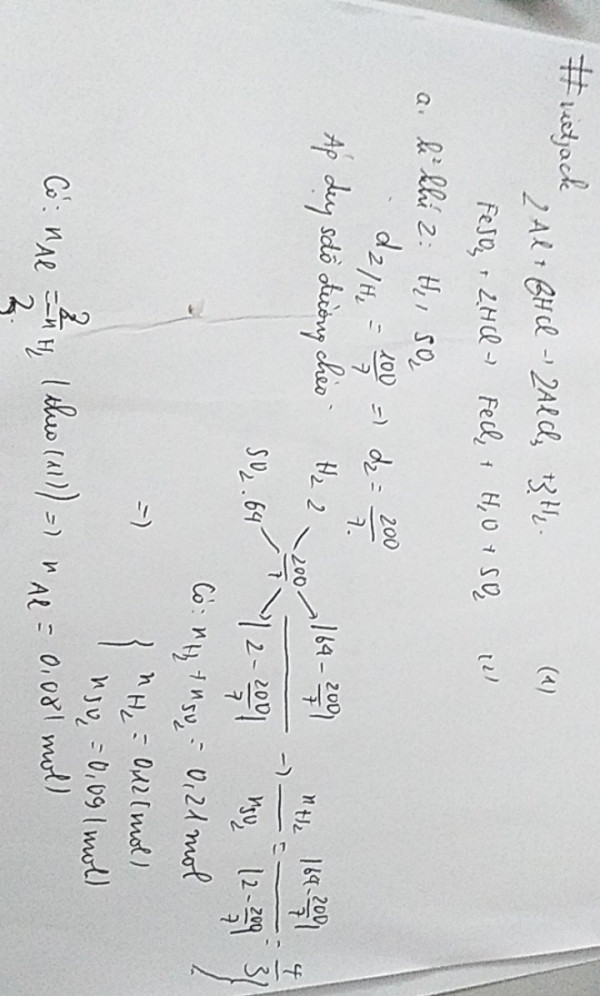 # vietjack
2Al + 6HCl → 2AlCl3 + 3H2. (1)
FeSO3 + 2HCl → FeCl2 + H2O + SO2 (2)
a. hh khí Z: H2, SO2
dZ/H2 = 100/7 => dZ = 200/7.
Áp dụng sđồ đường chéo.
H2 2 |64 - 200/7|
200/7
SO2. 64 |2 - 200/7|
→ nH2/nSO2 = |64 - 200/7|/|2 - 200/7| = 4/3
Có: nH2 + nSO2 = 0,21 mol
=> { nH2 = 0,12 (mol)
nSO2 = 0,09 (mol)
Có: nAl = 2/3 nH2 (theo (1)) => nAl = 0,08 (mol)